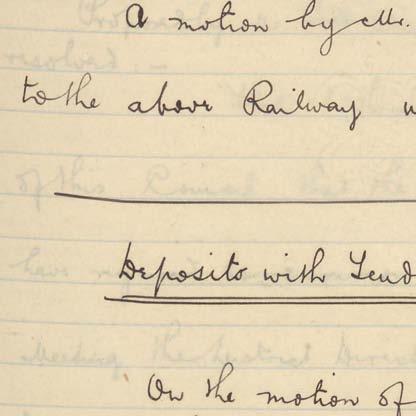 A motion by Mr.
to the above Railway
Deposits with Tend
On the motion of